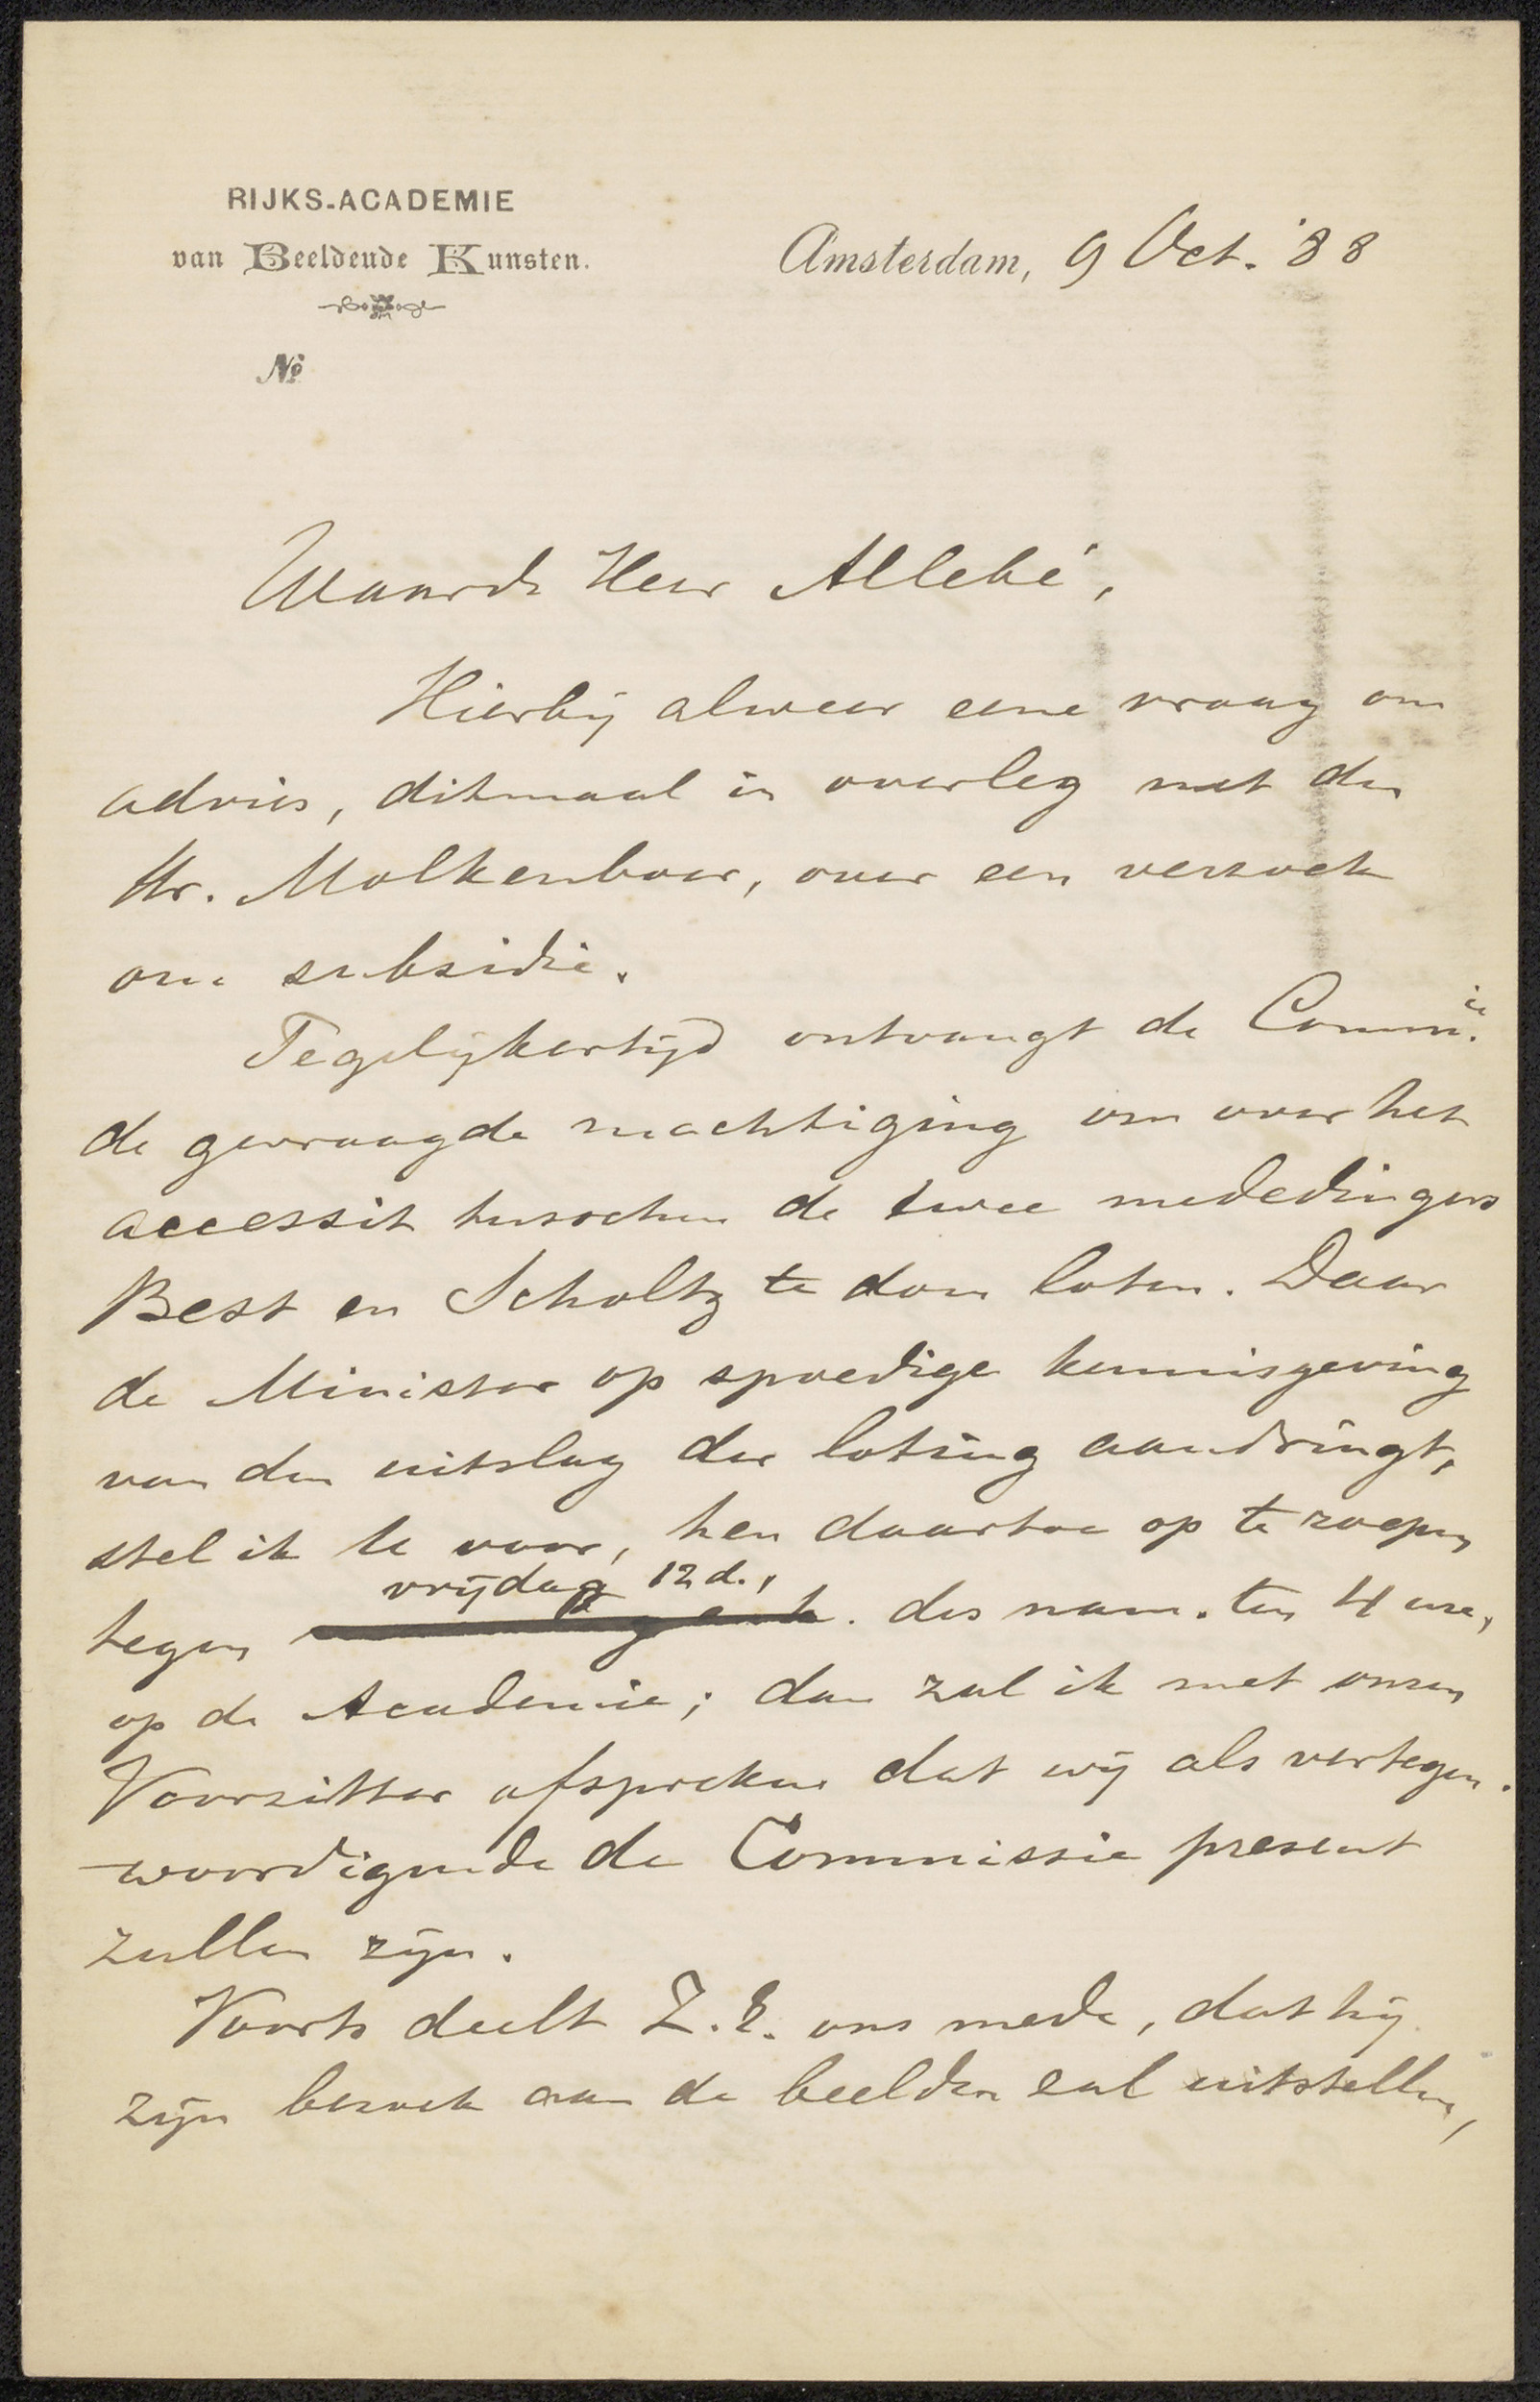 RIJKS-ACADEMIE
van Beeldende Kunsten.
Amsterdam, 9 Oct. '88
No
Waarde Heer Allebé,
Hierbij alweer eene vraag om
advies, ditmaal in overleg met den
Hr. Molkenboer, over een verzoek
om subsidie.
Tegelijkertijd ontvangt de Commie.
de gevraagde machtiging om over het
accessit tusschen de twee mededingers
Best en Scholtz te doen loten. Daar
de Minister op spoedige kennisgeving
van den uitslag der loting aandringt,
stel ik U voor, hen daartoe op te roepen
vrijdag 12 d.,
tegen des nam. ten 4 ure,
op de Academie; dan zal ik met onzen
Voorzitter afspreken dat wij als vertegen-
woordigende de Commissie present
zullen zijn.
Voorts deelt Z.E. ons mede, dat hij
zijn bezoek aan de beelden zal uitstellen,